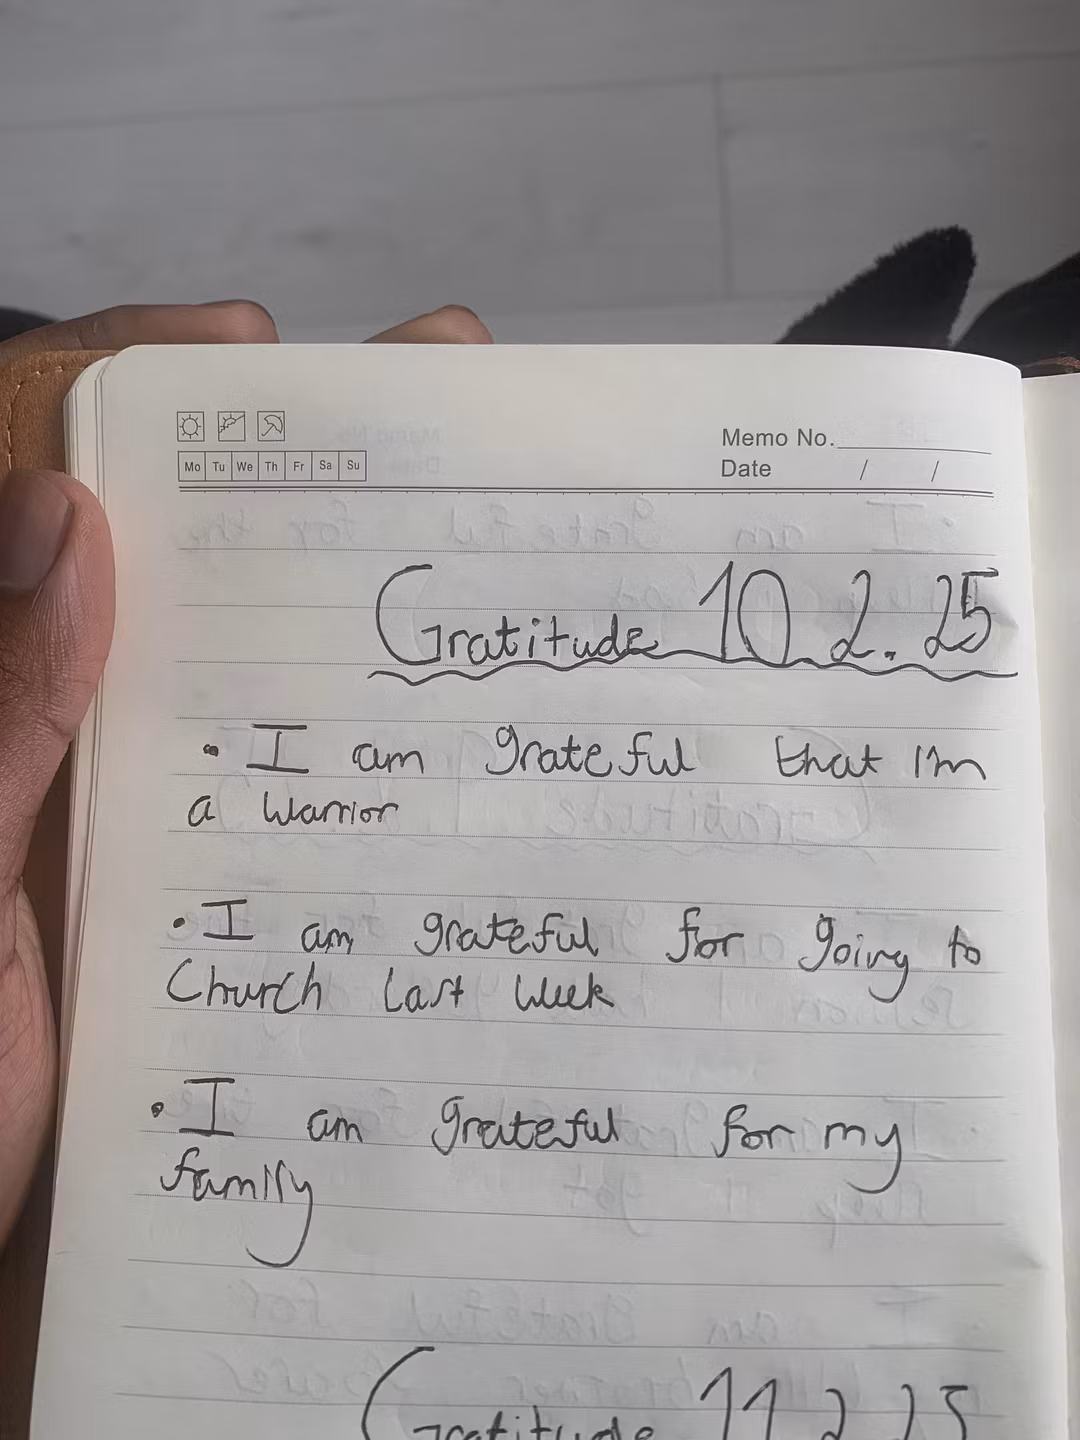 Memo No.
Mo Tu We Th Fr Sa Su
Date / /
Gratitude 10 2. 25
• I am grateful that I'm
a warrior
• I am grateful for going to
Church last week
• I am grateful for my
family
Gratitude 11 2 25